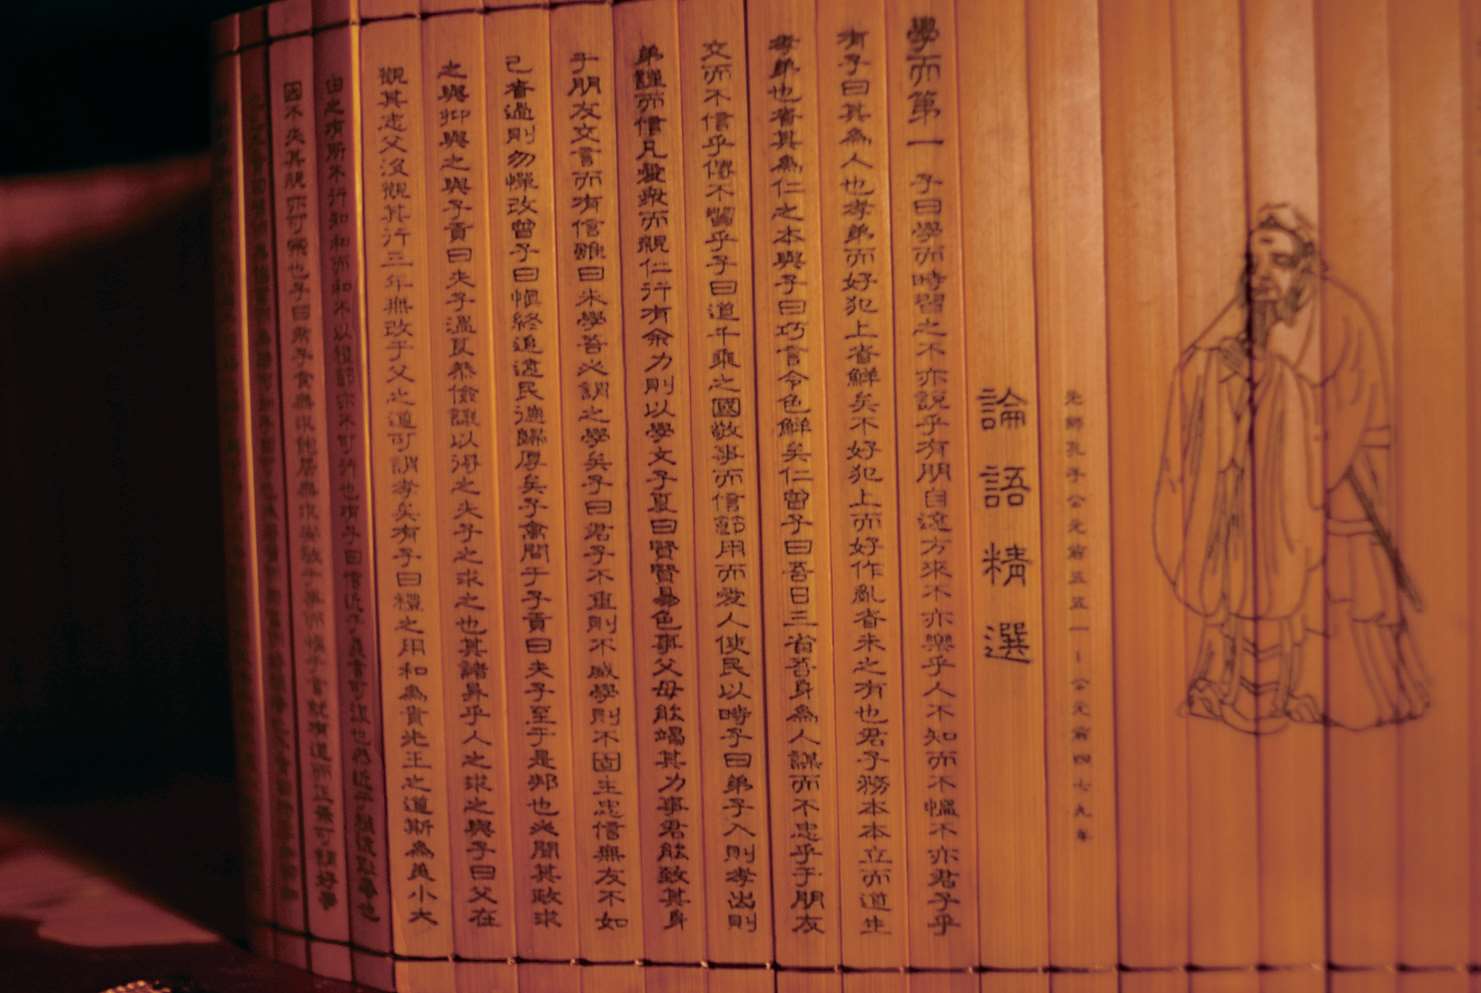 先師孔子公元前五五一－公元前四七九年
論語精選
學而第一　子曰學而時習之不亦說乎有朋自遠方來不亦樂乎人不知而不慍不亦君子乎
有子曰其為人也孝弟而好犯上者鮮矣不好犯上而好作亂者未之有也君子務本本立而道生
孝弟也者其為仁之本與子曰巧言令色鮮矣仁曾子曰吾日三省吾身為人謀而不忠乎于朋友
交而不信乎傳不習乎子曰道千乘之國敬事而信節用而愛人使民以時子曰弟子入則孝出則
弟謹而信凡愛眾而親仁行有余力則以學文子夏曰賢賢易色事父母能竭其力事君能致其身
于朋友交言而有信雖曰未學吾必謂之學矣子曰君子不重則不威學則不固主忠信無友不如
己者過則勿憚改曾子曰慎終追遠民德歸厚矣子禽問于子貢曰夫子至于是邦也必聞其政求
之與抑與之與子貢曰夫子溫良恭儉讓以得之夫子之求之也其諸異乎人之求之與子曰父在
觀其志父沒觀其行三年無改于父之道可謂孝矣有子曰禮之用和為貴先王之道斯為美小大
由之有所不行知和而和不以禮節亦不可行也有子曰信近于義言可復也恭近于禮遠恥辱也
因不失其親亦可宗也子曰君子食無求飽居無求安敏于事而慎于言就有道而正焉可謂好學